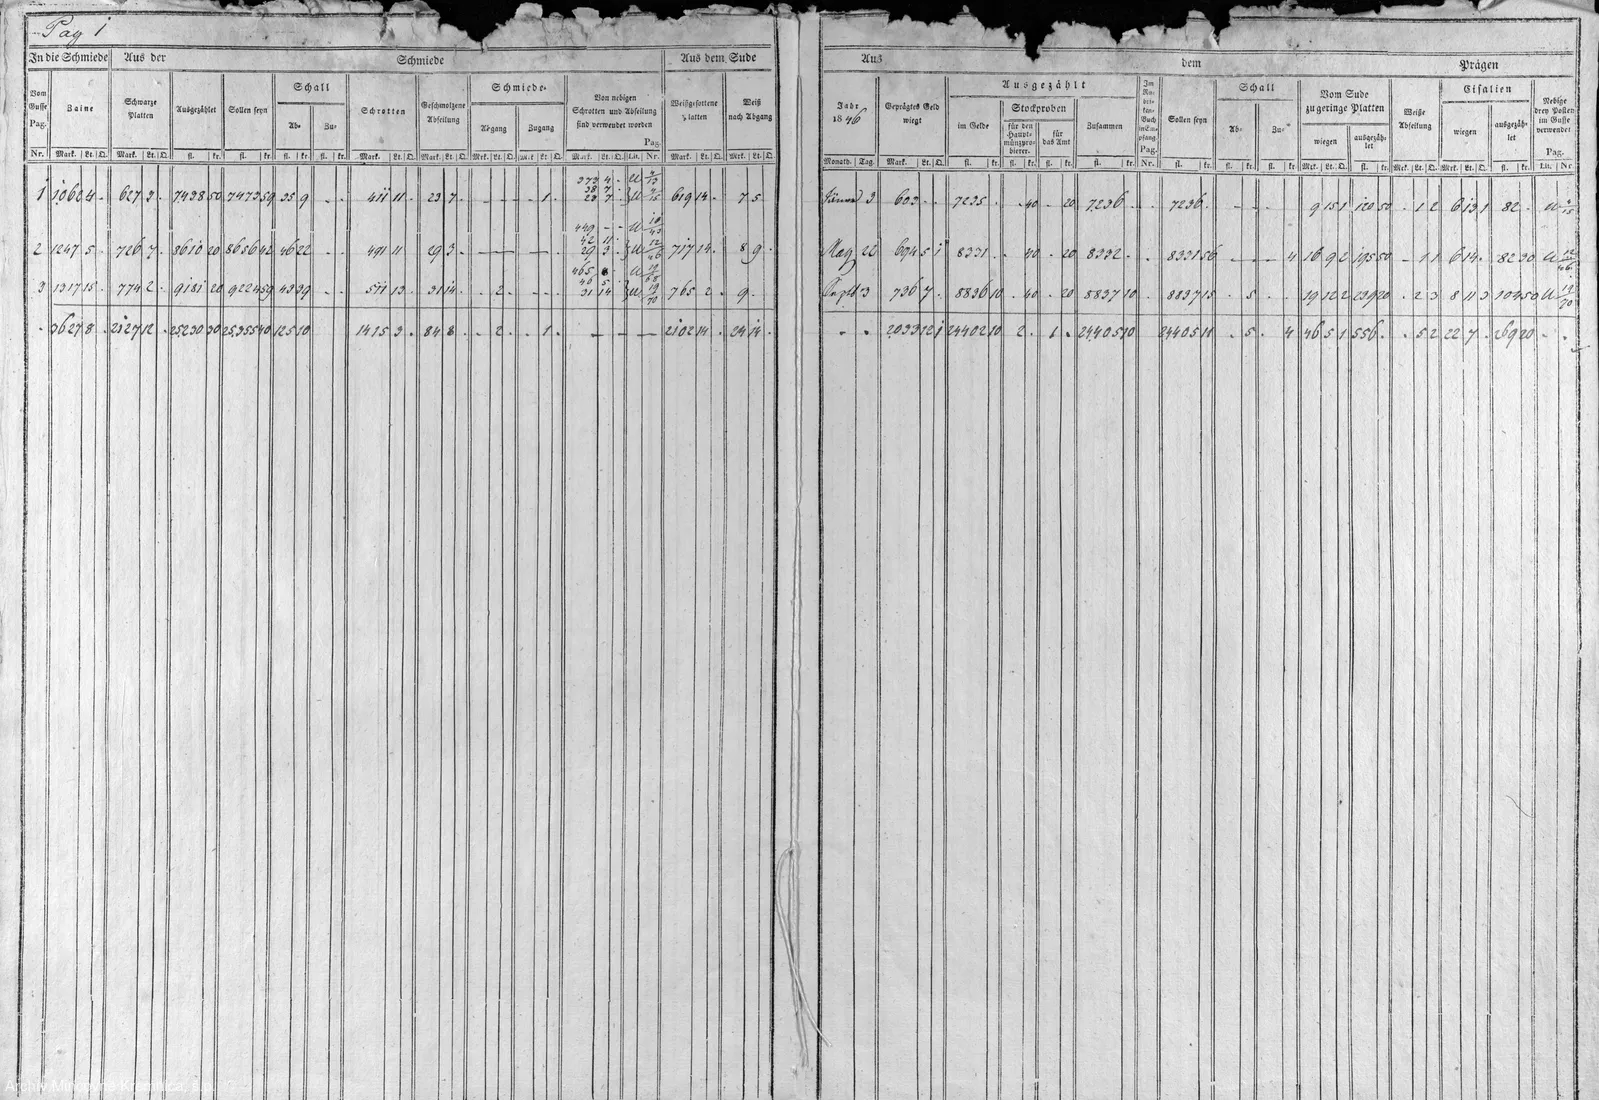 Pag 1
In die Schmiede Aus der Schmiede Aus dem Sude
Vom Gusse Pag. Nr.
Zaine
Schwarze Platten
Ausgezählet
Sollen seyn
Schall
Ab-
Zu-
Schrotten
Geschmolzene Abfeilung
Schmiede-
Abgang
Zugang
Von nebigen Schrotten und Abfeilung sind verwendet worden
Pag.
Weißgesottene Platten
Weiß nach Abgang
Nr. Mark. Lt. Q. Mark. Lt. Q. fl. kr. fl. kr. fl. kr. fl. kr. Mark. Lt. Q. Mark. Lt. Q. Mrk. Lt. Q. Mrk. Lt. Q. Mark. Lt. Q. Lit. Nr. Mark. Lt. Q. Mrk. Lt. Q.
373 4
38 7
1 1060 4 627 3 7438 50 7473 59 35 9 411 11 23 7 1 23 7 619 14 7 5
449
42 11
2 1247 5 726 7 8610 20 8656 42 46 22 491 11 29 3 29 3 717 14 8 9
465
46 5
3 1317 15 774 2 9181 20 9224 59 43 39 511 13 31 14 2 31 14 765 2 9
3627 8 2127 12 25230 30 25355 40 125 10 1415 3 84 8 2 1 2102 14 24 14
Aus dem Prägen
Jahr 1846
Geprägtes Geld wiegt
Ausgezählt
im Gelde
Stockproben
für den Hauptmünzprobierer.
für das Amt
Zusammen
Sollen seyn
Schall
Ab-
Zu-
Vom Sude zu geringe Platten
wiegen
ausgezählet
Weiße Abfeilung
Cisalien
wiegen
ausgezählet
Nebige drey Posten im Gusse verwendet
Pag.
Monath. Tag. Mark. Lt. Q. fl. kr. fl. kr. fl. kr. fl. kr. Nr. fl. kr. fl. kr. fl. kr. Mrk. Lt. Q. fl. kr. Mrk. Lt. Q. Mrk. Lt. Q. fl. kr. Lit. Nr.
3 603 7235 40 20 7236 7236 9 15 1 120 50 1 2 6 13 1 82
May 22 694 5 1 8331 40 20 8332 8331 56 4 16 9 2 195 50 1 1 6 14 82 30
Septb 3 736 7 8836 10 40 20 8837 10 8837 15 5 19 12 2 239 20 2 3 8 11 3 104 50
2033 12 1 24402 10 2 1 24405 10 24405 11 5 4 46 5 1 556 5 2 22 7 269 20
Archív Mincovne Kremnica, š.p.